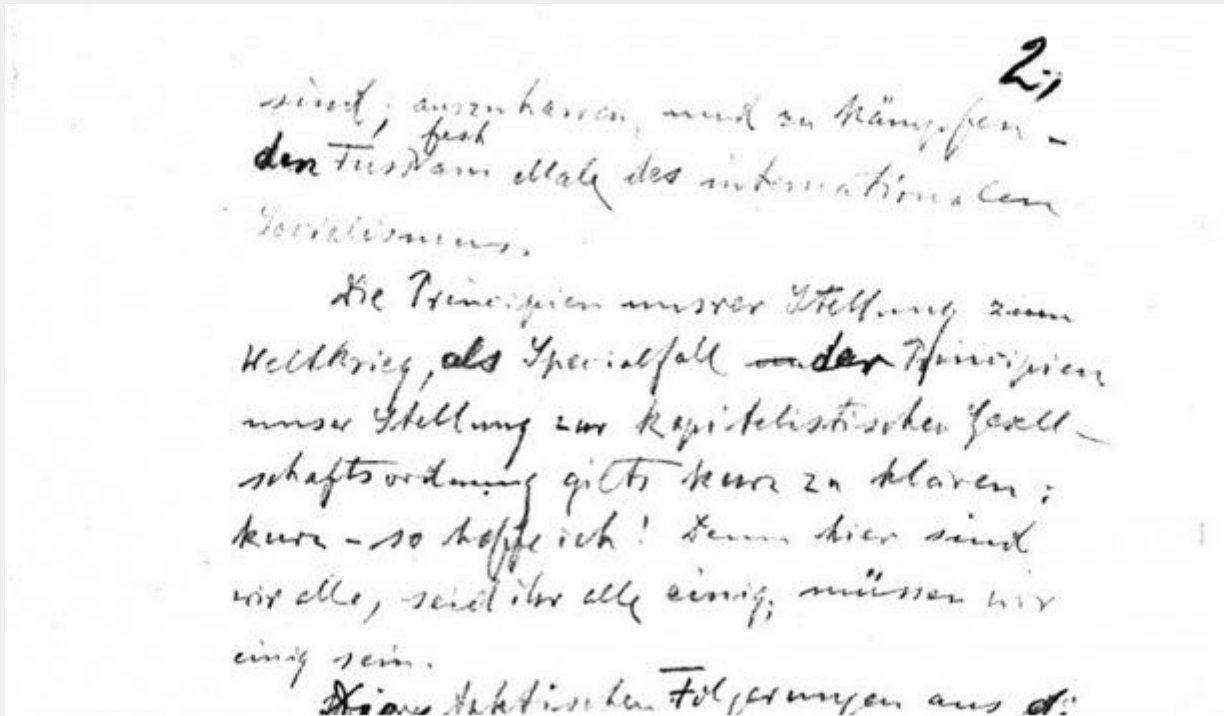 2.,
sind, auszuharren, und zu kämpfen –
den Fuss fest am Male des internationalen
Socialismus.
Die Principien unsrer Stellung zum
Weltkrieg, als Specialfall der Principien
unser Stellung zur kapitalistischen Gesell-
schaftsordnung gilts kurz zu klären;
kurz – so hoffe ich! Denn hier sind
wir alle, seid ihr alle einig, müssen wir
einig sein.
taktischen Folgerungen aus